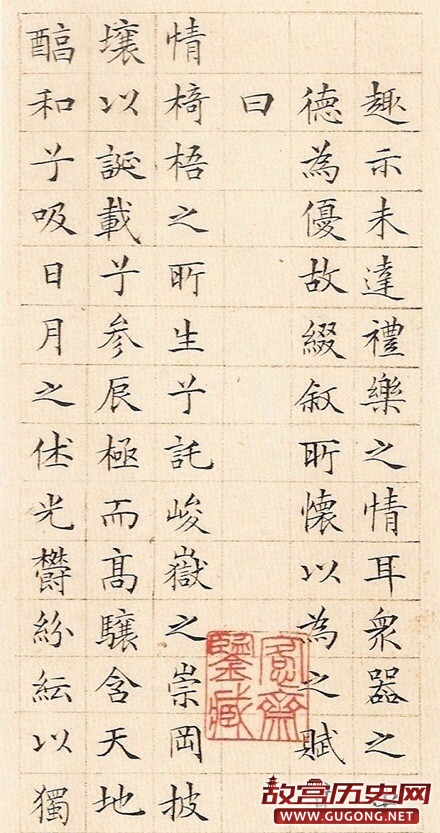 趣示未達禮樂之情耳衆器之
德為優故綴敘所懷以為之賦
曰
情椅梧之所生兮託峻嶽之崇岡披
壤以誕載兮参辰極而髙驤含天地
醕和兮吸日月之休光鬱紛紜以獨
故宫历史网
WWW.GUGONG.NET